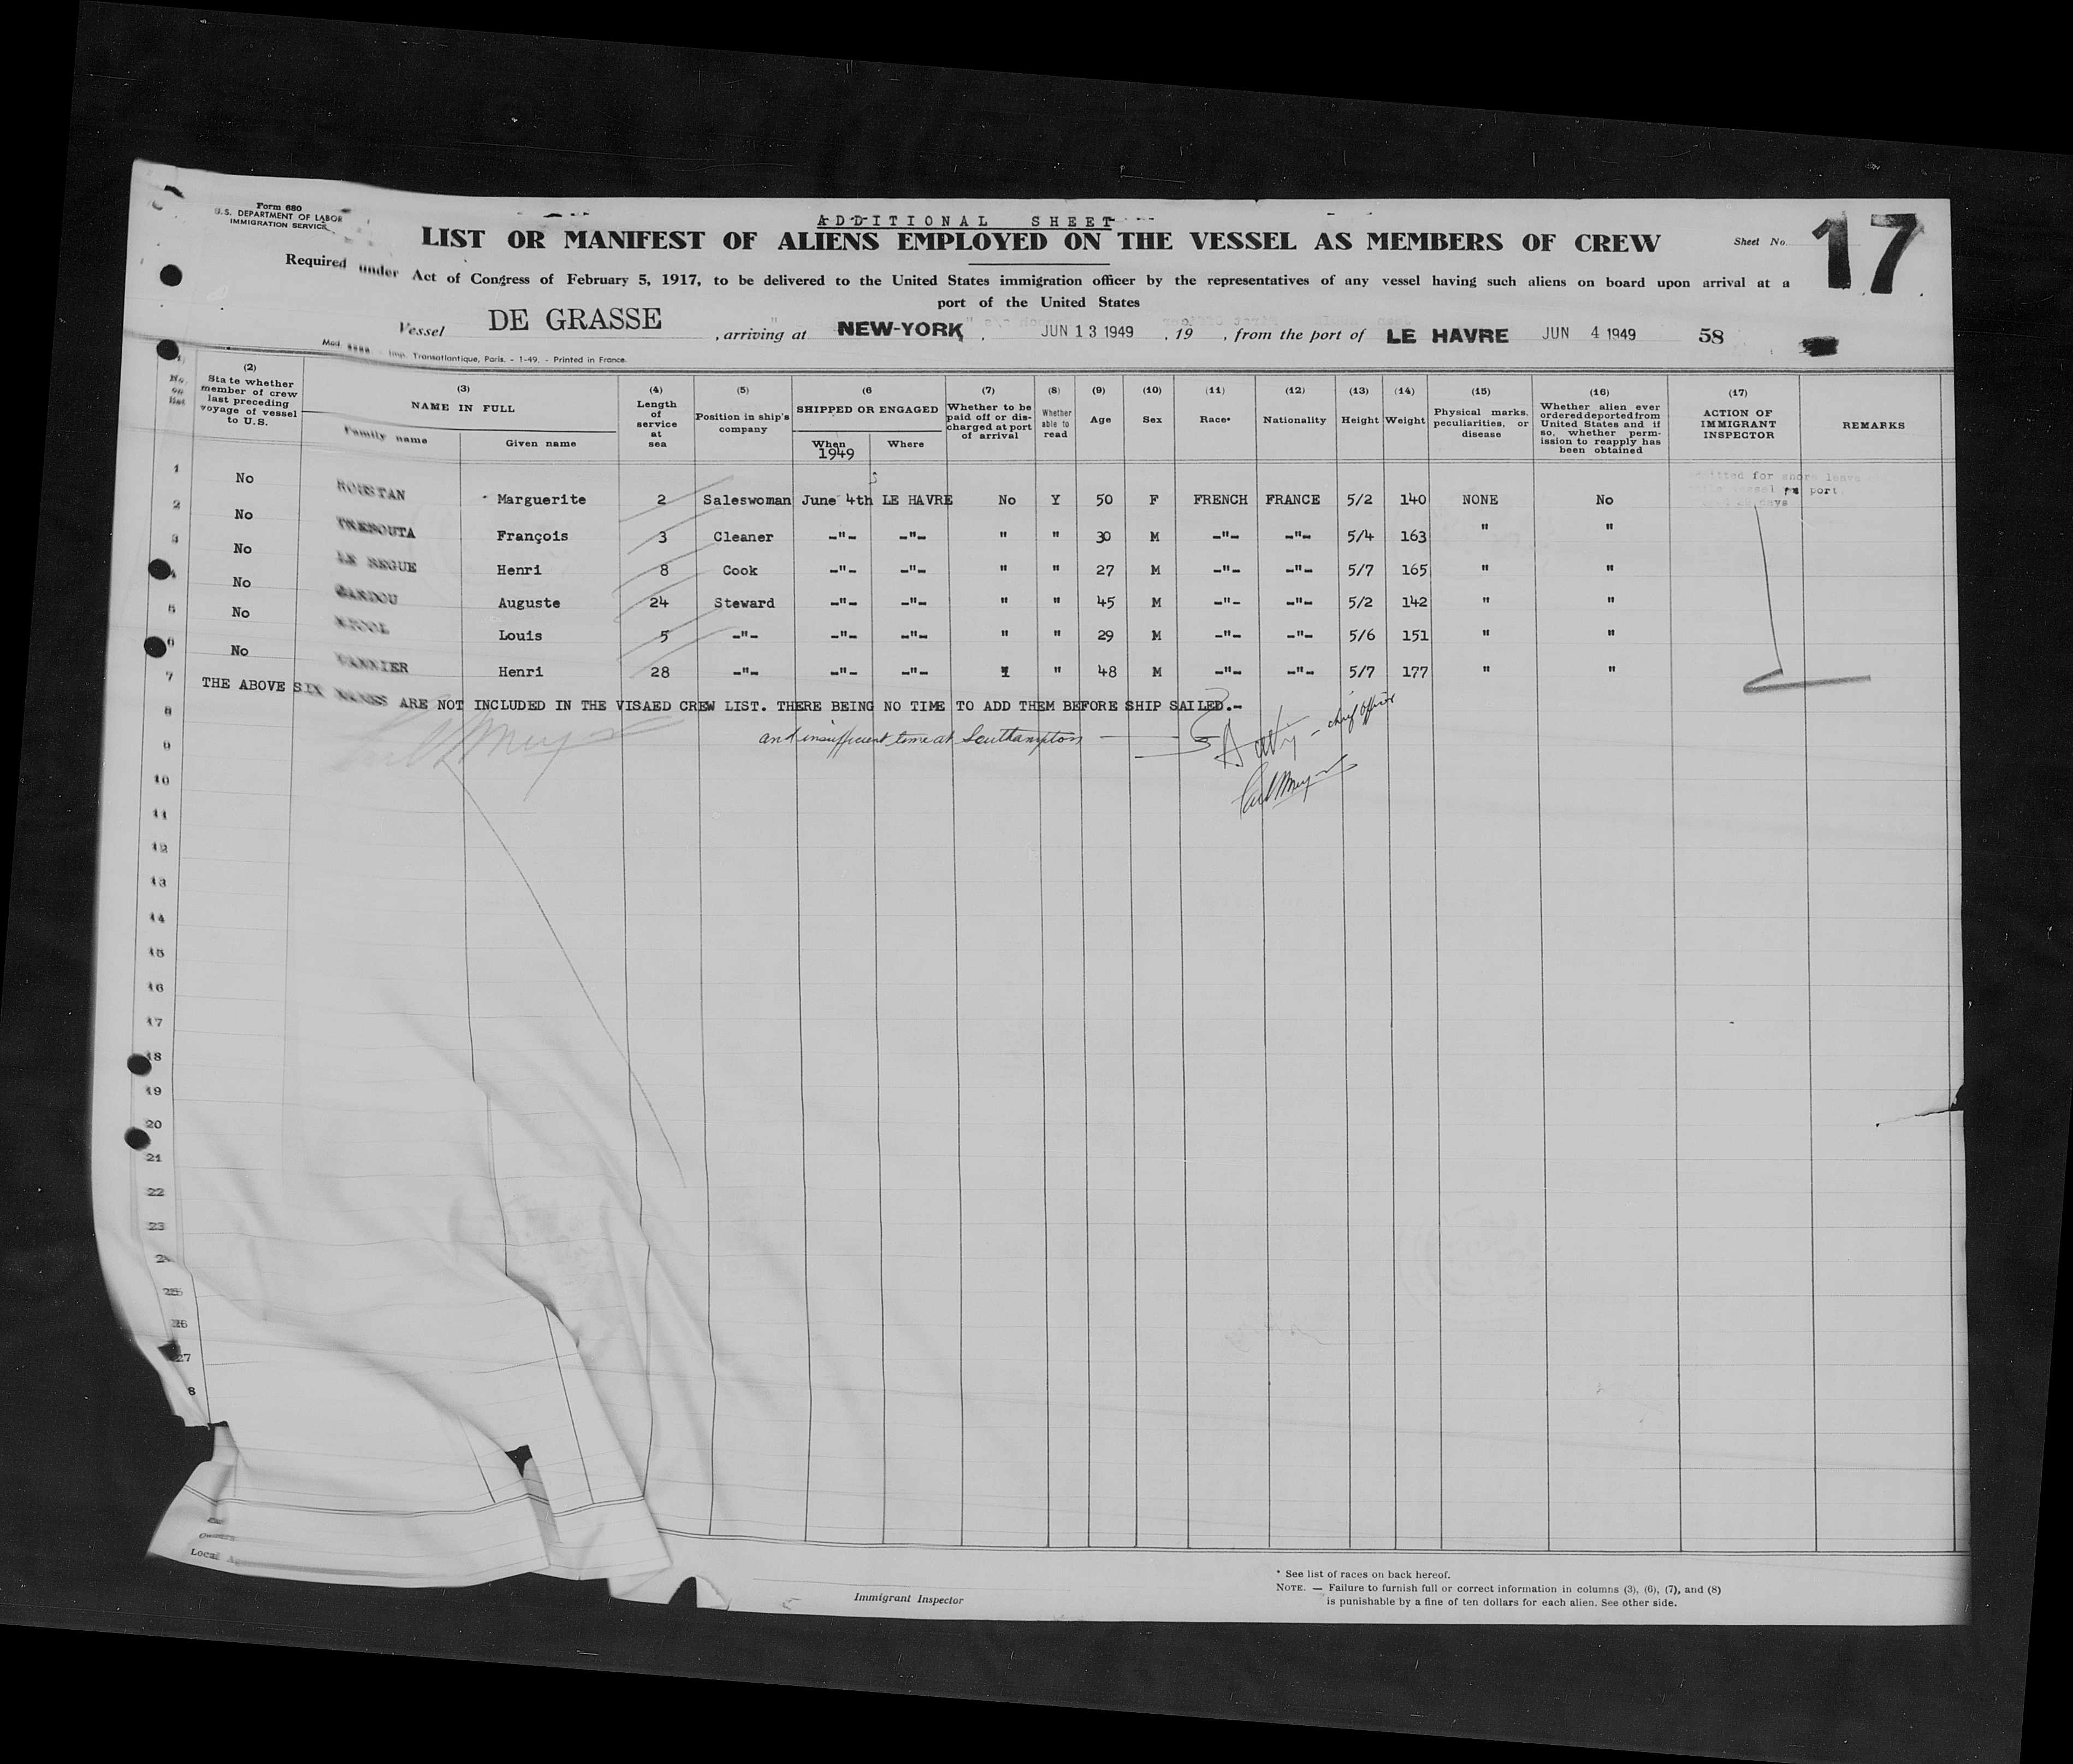 Form 680
U.S. DEPARTMENT OF LABOR
IMMIGRATION SERVICE
ADDITIONAL SHEET
LIST OR MANIFEST OF ALIENS EMPLOYED ON THE VESSEL AS MEMBERS OF CREW
Sheet No. 17
Required under Act of Congress of February 5, 1917, to be delivered to the United States immigration officer by the representatives of any vessel having such aliens on board upon arrival at a
port of the United States
Vessel DE GRASSE , arriving at NEW-YORK, JUN 13 1949 , 19 , from the port of LE HAVRE JUN 4 1949 58
Imp. Transatlantique, Paris. - 1-49. - Printed in France.
(2) State whether member of crew last preceding voyage of vessel to U.S.
(3) NAME IN FULL
Family name
Given name
(4) Length of service at sea
(5) Position in ship's company
(6 SHIPPED OR ENGAGED
When 1949
Where
(7) Whether to be paid off or discharged at port of arrival
(8) Whether able to read
(9) Age
(10) Sex
(11) Race*
(12) Nationality
(13) Height
(14) Weight
(15) Physical marks, peculiarities, or disease
(16) Whether alien ever ordered deported from United States and if so, whether permission to reapply has been obtained
(17) ACTION OF IMMIGRANT INSPECTOR
REMARKS
1 No ROUSTAN Marguerite 2 Saleswoman June 4th LE HAVRE No Y 50 F FRENCH FRANCE 5/2 140 NONE No
for shore leave
port
days
2 No François 3 Cleaner -"- -"- " " 30 M -"- -"- 5/4 163 " "
3 No LE BEGUE Henri 8 Cook -"- -"- " " 27 M -"- -"- 5/7 165 " "
4 No Auguste 24 Steward -"- -"- " " 45 M -"- -"- 5/2 142 " "
5 No Louis 5 -"- -"- -"- " " 29 M -"- -"- 5/6 151 " "
6 No VANNIER Henri 28 -"- -"- -"- " 48 M -"- -"- 5/7 177 " "
7 THE ABOVE SIX NAMES ARE NOT INCLUDED IN THE VISAED CREW LIST. THERE BEING NO TIME TO ADD THEM BEFORE SHIP SAILED.-
8
and insufficient time at Southampton — chief officer
9
10
11
12
13
14
15
16
17
18
19
20
21
22
23
24
25
26
27
8
Owners
Local
Immigrant Inspector
* See list of races on back hereof.
NOTE. — Failure to furnish full or correct information in columns (3), (6), (7), and (8)
is punishable by a fine of ten dollars for each alien. See other side.